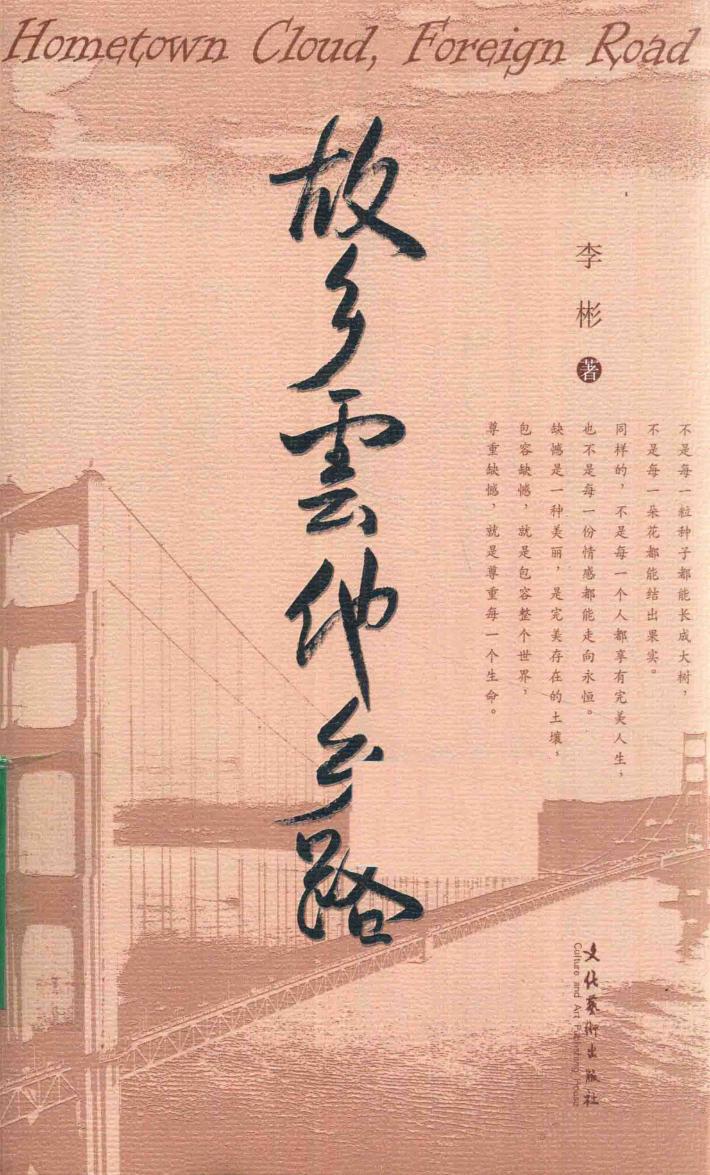 Hometown Cloud, Foreign Road
故乡雲他乡路
李彬 著
不是每一粒种子都能长成大树，
不是每一朵花都能结出果实。
同样的，不是每一个人都享有完美人生，
也不是每一份情感都能走向永恒。
缺憾是一种美丽，是完美存在的土壤，
包容缺憾，就是包容整个世界，
尊重缺憾，就是尊重每一个生命。
文化藝術出版社
Culture and Art Publishing House